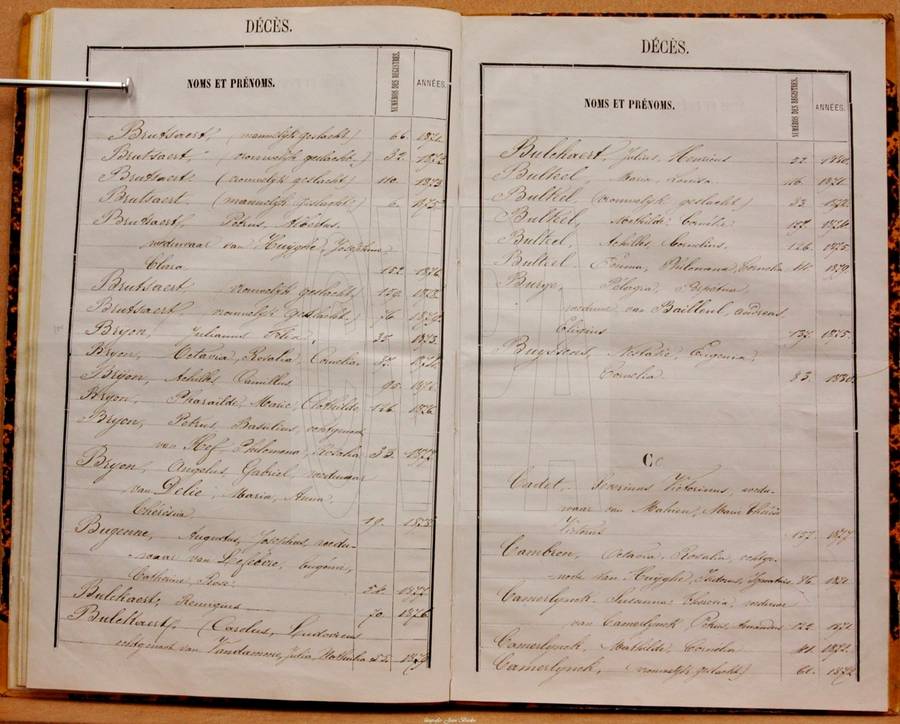 DÉCÈS.
NOMS ET PRÉNOMS. NUMÉROS DES REGISTRES. ANNÉES.
Brutsaert, (mannelijk geslacht) 66 1871
Brutsaert, (vrouwelijk geslacht) 32 1872
Brutsaert (vrouwelijk geslacht) 110 1873
Brutsaert (mannelijk geslacht) 6 1875
Brutsaert, Petrus, Albertus,
weduwaar van Huyghe, Josephine
Clara 152 1876
Brutsaert vrouwelijk geslacht,
Brutsaert, vrouwelijk geslacht) 76
Bryon, Julianus Felix, 35 1873
Bryon, Octavia, Rosalia, Cornelia 87
Bryon, Achilles Camillus 95 1876
Bryon, Pharaïlde, Marie, Clothilde 126 1876
Bryon, Petrus, Basilius, echtgenoot
van Hof Philomena, Rosalia 33 1877
Bryon, Angelus, Gabriel, weduwaar
van Delie, Maria, Anna
Thérésia 19 1878
Bugenne, Augustus, Josephus, wedu-
-waar van Eugenie,
Catherine, Rose 58 1877
Bulckaert, Remigius 70 1876
Bulckaert, Carolus, Ludovicus
echtgenoot van Vandamme, Julia, Mathilda 55 1879
DÉCÈS.
NOMS ET PRÉNOMS. NUMÉROS DES REGISTRES. ANNÉES.
Bulckaert, Julius, Henricus 22 1880
Bulteel, Maria, Louisa 116 1871
Bulteel (vrouwelijk geslacht) 83 1872
Bulteel, Mathilde Camilie 127 1874
Bulteel, Achilles, Cornelius 126 1875
Bulteel Emma, Philomena, Cornelia 114 1879
Burge, Pelagia, Benedicta
weduwe van Bailleul, Andreas
Eligius 137 1875
Nathalie, Eugenia,
Cornelia 83 1880
Cc
Cadet, Severinus Victorinus, wedu-
waar van Mahieu, Marie Thérèse
Victoire 132 1877
Cambron, Octavia, Rosalia, echtge-
-noote van Huyghe, Isidorus, Ignatius 86 1871
Camerlynck, Susanna Theresia, weduwe
van Camerlynck Petrus, Amandus 122 1871
Camerlynck, Mathilde, Cornelia 41 1872
Camerlynck, (vrouwelijk geslacht) 61 1872